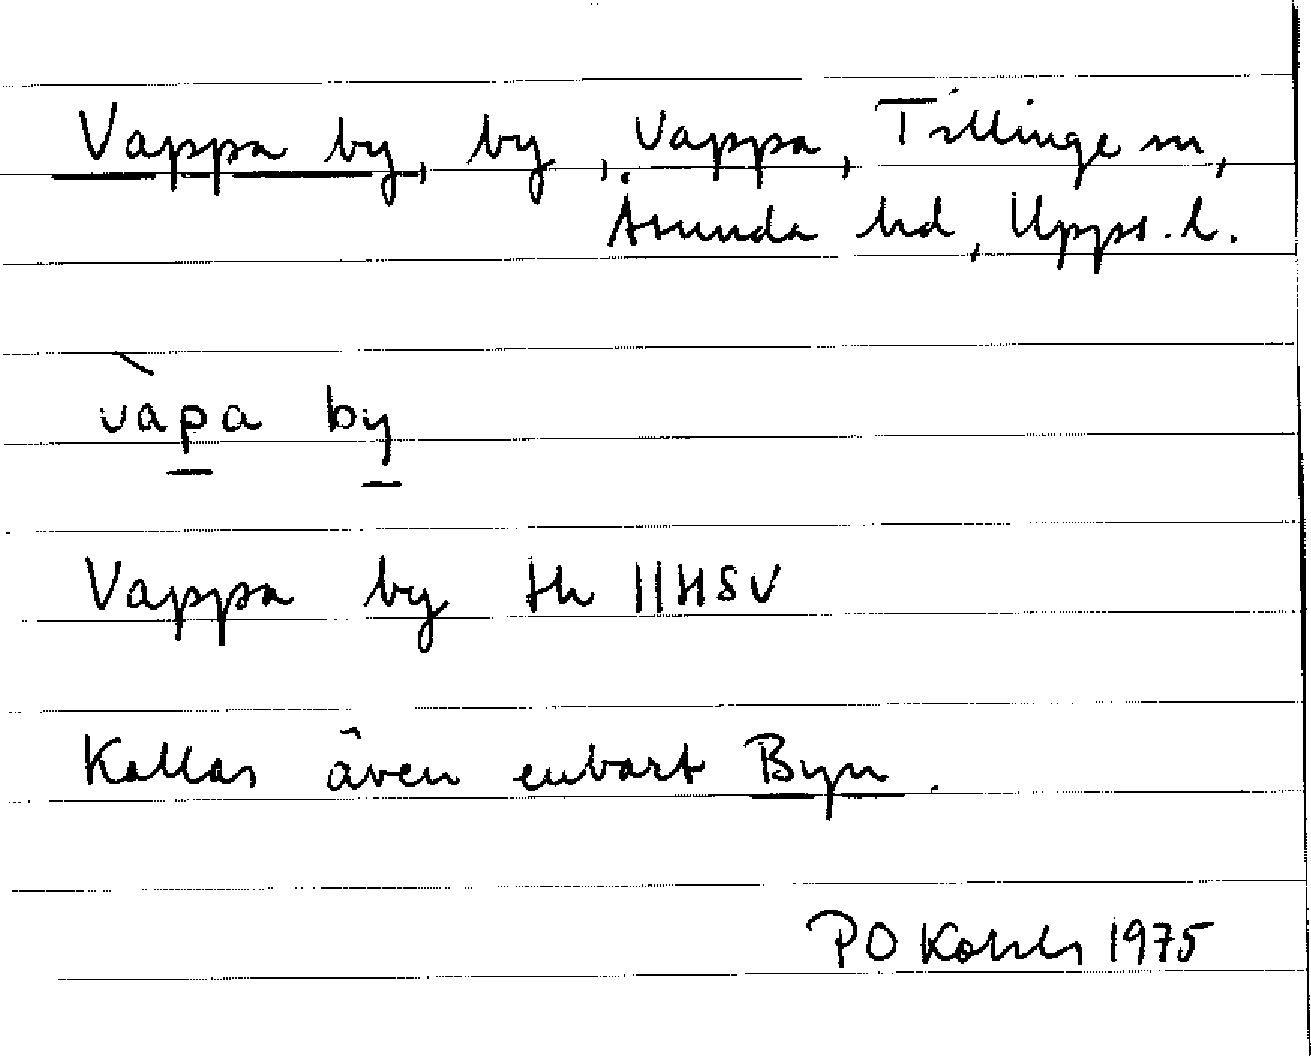 Vappa by, by, Vappa, Tillinge sn,
Åsunda hd, Upps. l.
vàpa by
Vappa by tk 11HSV
Kallas även enbart Byn.
PO 1975